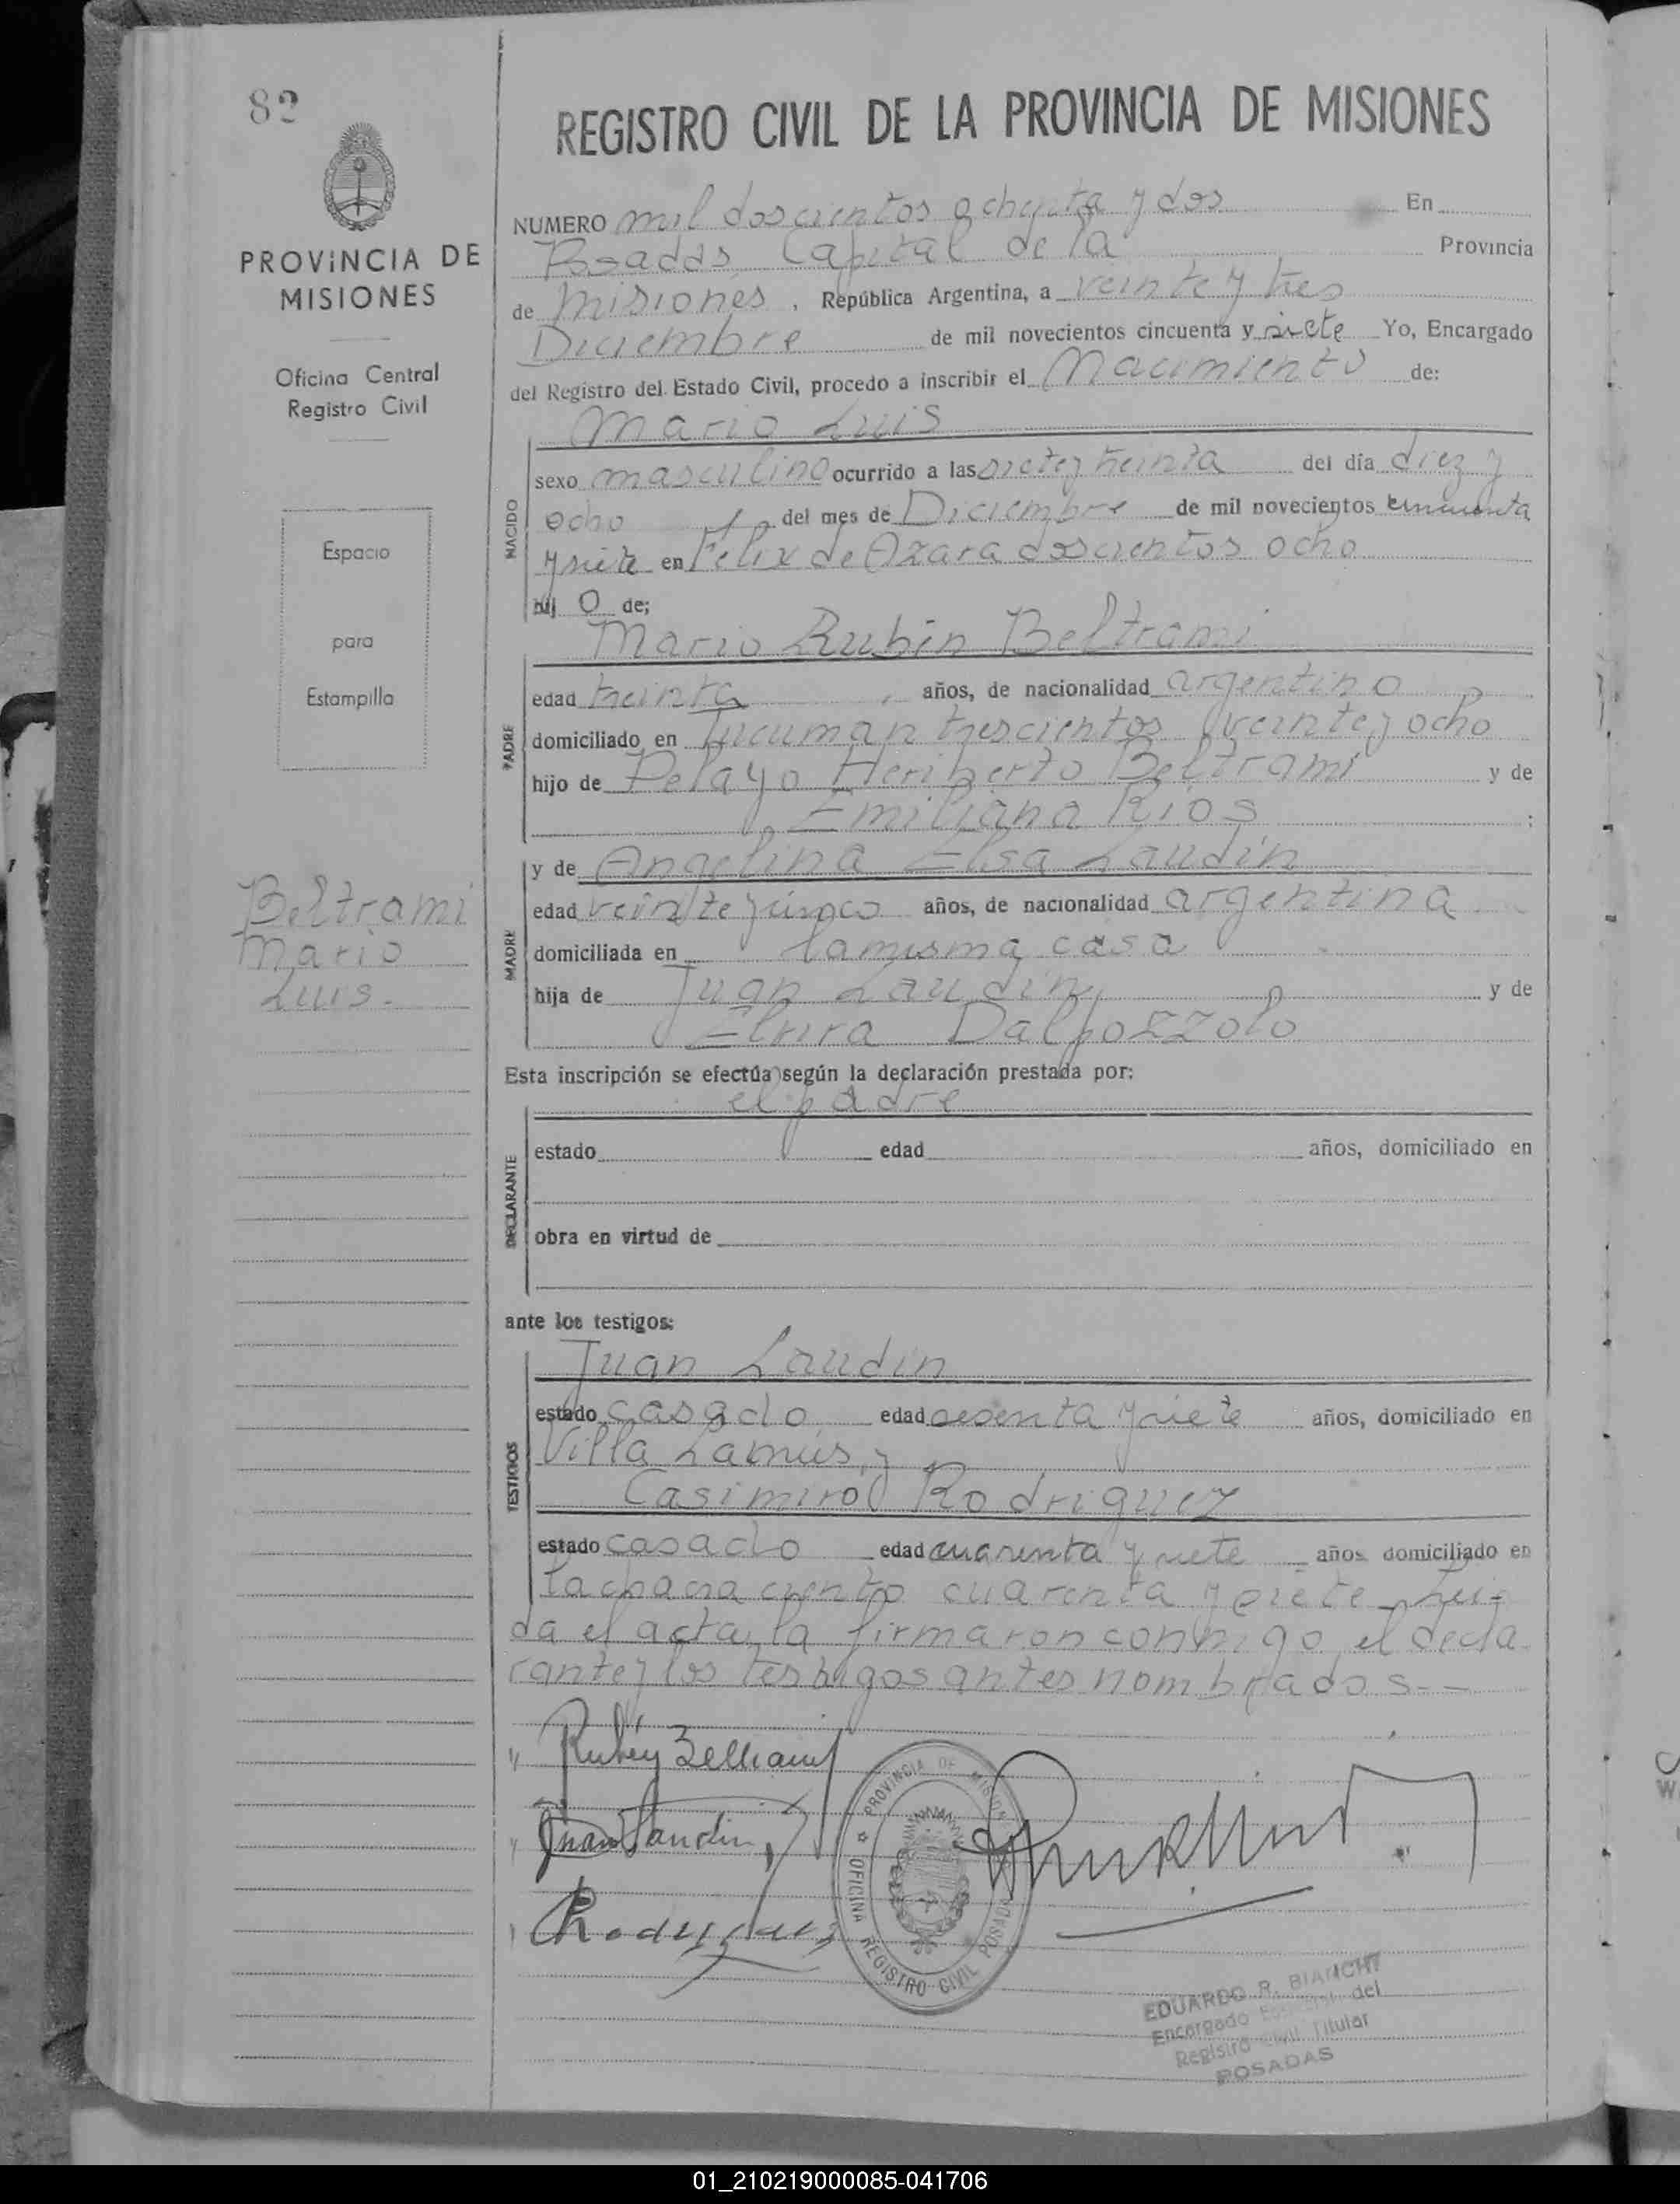 82
PROVINCIA DE
MISIONES
Oficina Central
Registro Civil
Espacio
para
Estampilla
Beltrami
Mario
Luis.-
REGISTRO CIVIL DE LA PROVINCIA DE MISIONES
NUMERO mil doscientos ochenta y dos En
Posadas, Capital de la Provincia
de Misiones, República Argentina, a veinte y tres
Diciembre de mil novecientos cincuenta y siete Yo, Encargado
del Registro del Estado Civil, procedo a inscribir el Nacimiento de:
NACIDO
Mario Luis
sexo masculino ocurrido a las siete y treinta del día diez y
ocho del mes de Diciembre de mil novecientos cincuenta
y siete en Félix de Azara doscientos ocho
hij o de;
PADRE
Mario Rubén Beltrami
edad treinta años, de nacionalidad argentino
domiciliado en Tucuman trescientos veinte y ocho
hijo de Pelayo Heriberto Beltrami y de
Emiliana Rios ;
MADRE
y de Angelina Elisa Laudin
edad veinte y cinco años, de nacionalidad argentina
domiciliada en la misma casa
hija de Juan Laudin, y de
Elvira Dalpozzolo
Esta inscripción se efectúa según la declaración prestada por:
el padre
DECLARANTE
estado edad años, domiciliado en
obra en virtud de
ante los testigos:
TESTIGOS
Juan Laudin
estado casado edad sesenta y siete años, domiciliado en
Villa Lanús, y
Casimiro Rodriguez
estado casado edad cuarenta y siete años domiciliado en
la chacra ciento cuarenta y siete. Lei-
da el acta, la firmaron conmigo, el decla-
rante y los testigos antes nombrados.--
Rubén Beltrami
Juan Laudin
Rodriguez
PROVINCIA DE MISIONES
OFICINA REGISTRO CIVIL POSADAS
EDUARDO R. BIANCHI
Encargado del
Registro Civil Titular
POSADAS
01_210219000085-041706